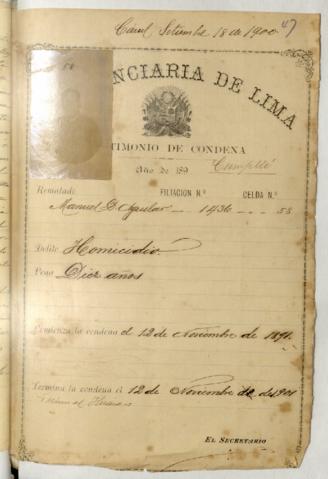 Carcel, Setiembre 18 de 1900 47
NCIARIA DE LIMA
TIMONIO DE CONDENA
Año de 189
Cumplió
Rematado FILIACION N.º CELDA N.º
Manuel B. Aguilar 1436 55
Delito Homicidio.
Pena Diez años
Comienza la condena el 12 de Noviembre de 1891.
Termina la condena el 12 de Noviembre de 1901
EL SECRETARIO